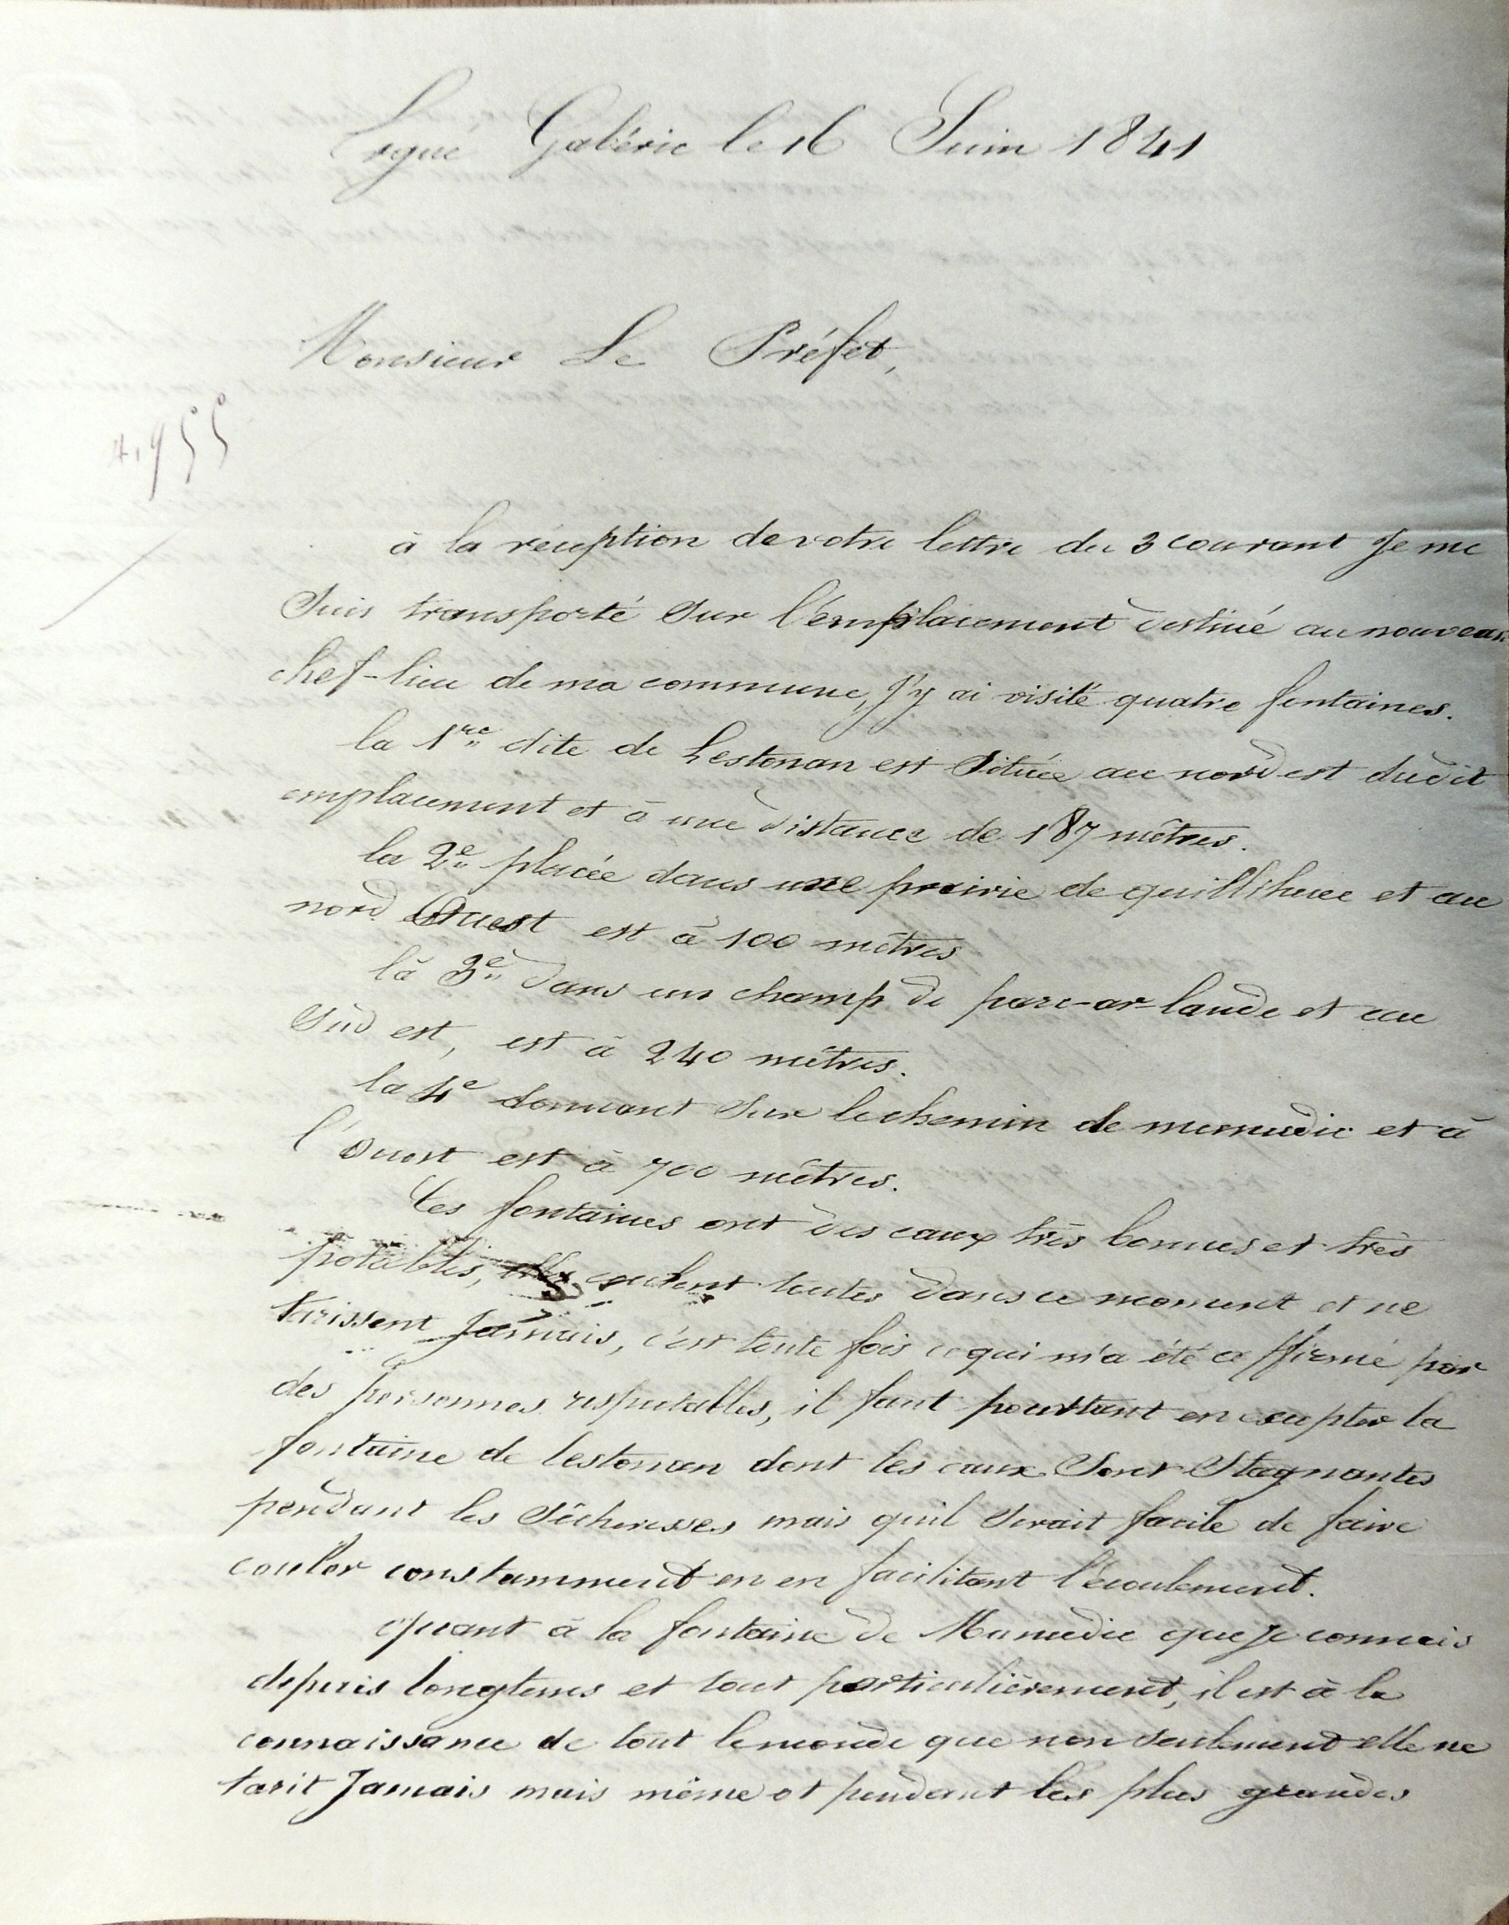 Ergué Gabéric le 16 Juin 1841
Monsieur Le Préfet,
4,955
à la réception de votre lettre du 3 courant Je me
suis transporté sur l'emplacement destiné au nouveau
chef-lieu de ma commune, J'y ai visité quatre fontaines.
la 1re dite de Lestonan est située au nord est dudit
emplacement et à une distance de 187 mètres.
la 2e placée dans une prairie de quillihuec et au
nord Ouest est à 100 mètres
la 3e dans un champ de parc-ar-lande et au
Sud est, est à 240 mètres.
la 4e donnant sur le chemin de munudic et à
l'ouest est à 700 mètres.
Ces fontaines ont des eaux très bonnes et très
potables, elles coulent toutes dans ce moment et ne
tarissent Jamais, c'est toute fois ce qui m'a été affirmé par
des personnes respectables, il faut pourtant en excepter la
fontaine de lestonan dont les eaux sont stagnantes
pendant les sécheresses mais qu'il serait facile de faire
couler constamment en en facilitant l'écoulement.
quant à la fontaine de Munudic que Je connais
depuis longtems et tout particulièrement, il est à la
connaissance de tout le monde que non seulement elle ne
tarit Jamais mais même et pendant les plus grandes